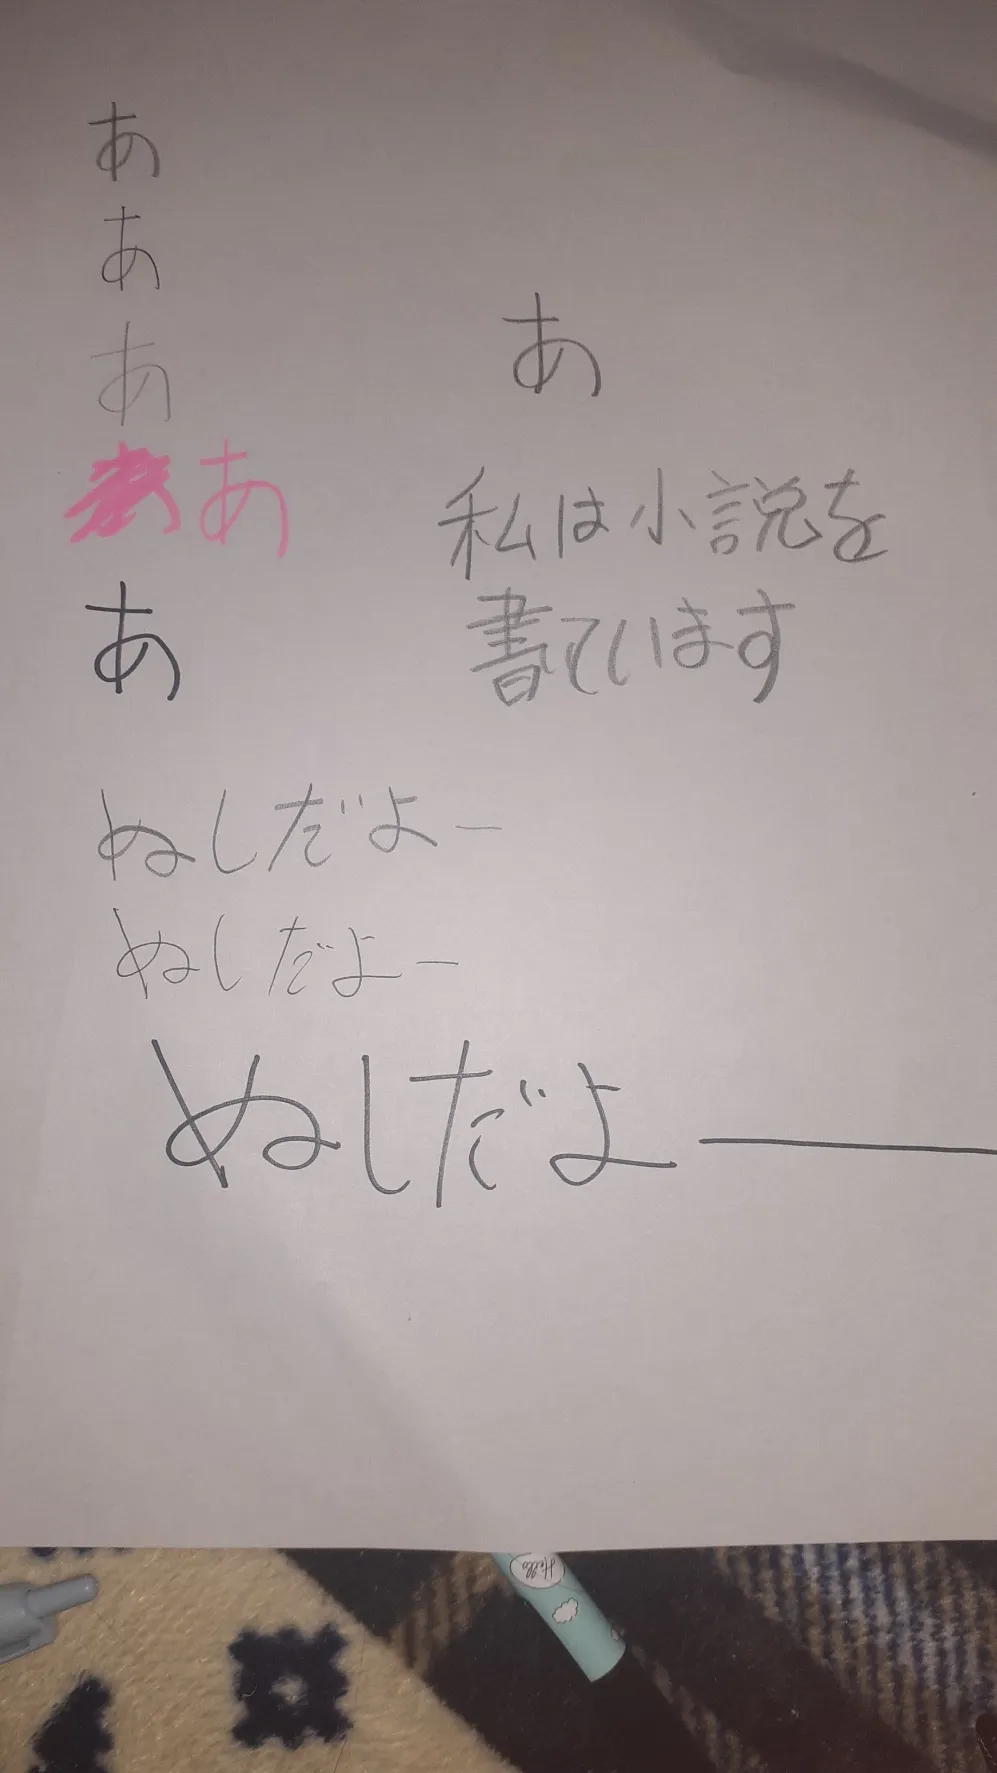 あ
あ
あ
あ
あ
あ
私は小説を
書ています
ぬしだよー
ぬしだよー
ぬしだよー
Hello